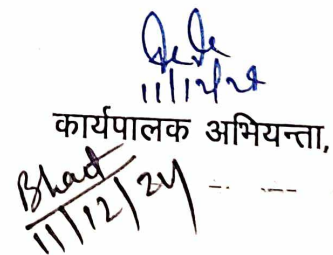 11/12/24
कार्यपालक अभियन्ता,
11/12/24